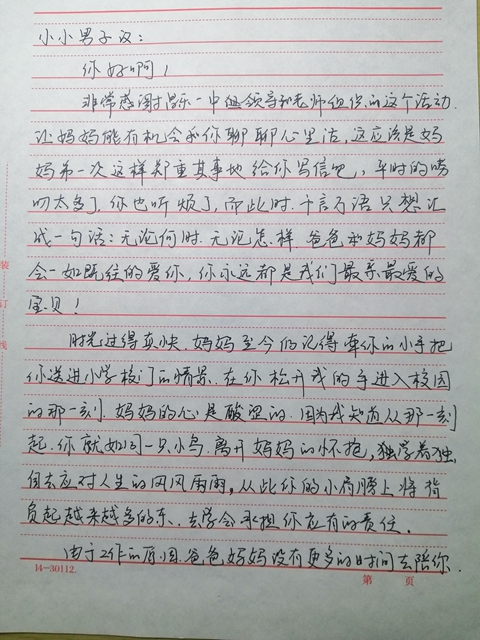 小小男子汉:
你好啊!
非常感谢昌乐一中级领导和老师组织的这个活动.
让妈妈能有机会和你聊聊心里话,这应该是妈
妈第一次这样郑重其事地给你写信吧,平时的唠
叨太多了,你也听烦了,而此时.千言万语只想汇
成一句话:无论何时.无论怎样.爸爸和妈妈都
会一如既往的爱你,你永远都是我们最亲最爱的
宝贝!
时光过得真快.妈妈至今仍记得牵你的小手把
你送进小学校门的情景.在你松开我的手进入校园
的那一刻.妈妈的心是酸涩的.因为我知道从那一刻
起.你就如同一只小鸟.离开妈妈的怀抱,独学着独
自去应对人生的风风雨雨,从此你的小肩膀上将背
负起越来越多的东.去学会承担你应有的责任.
由于工作的原因.爸爸妈妈没有更多的时间去陪你.
装
订
线
14-30112.
第 页